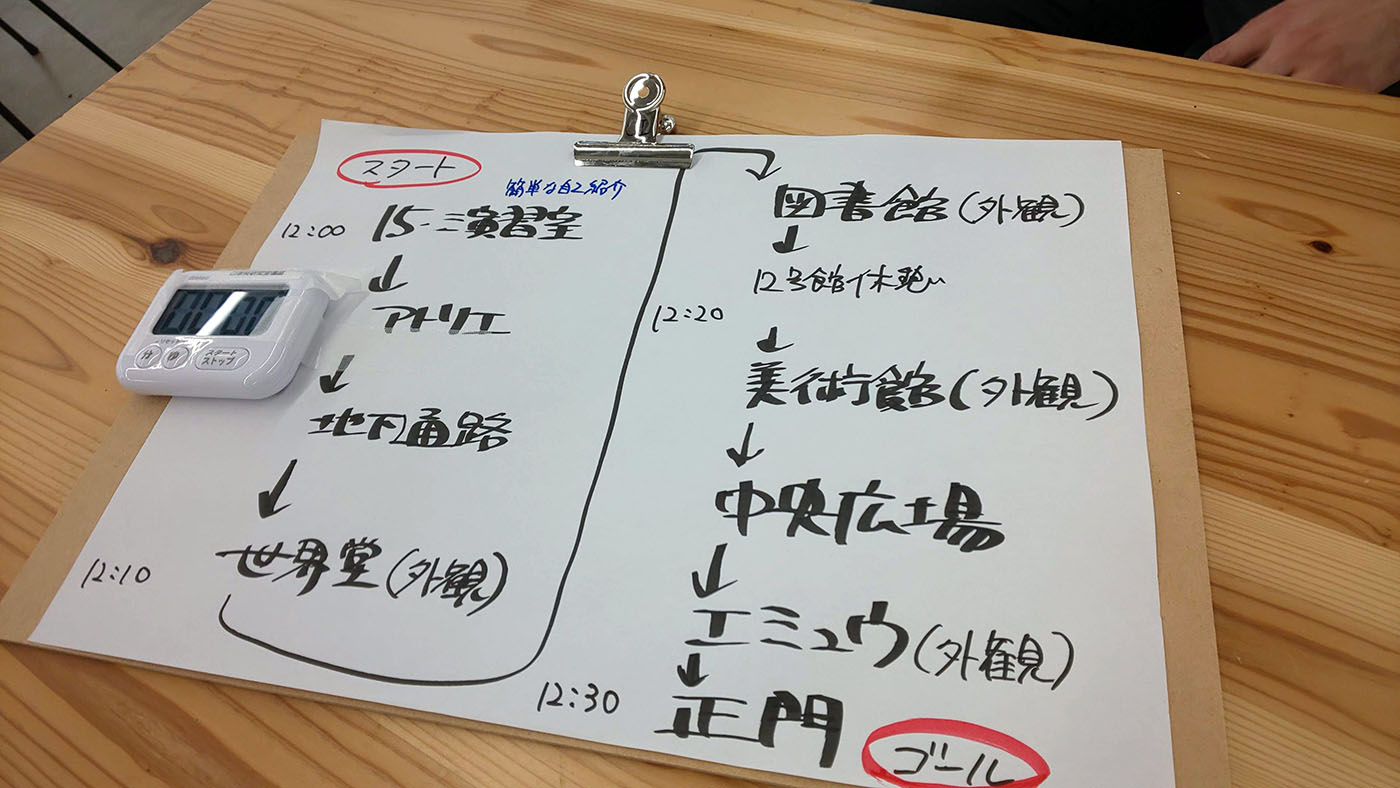 スタート
簡単な自己紹介
12:00 15-演習室
↓
アトリエ
↓
地下通路
↓
12:10 世界堂(外観)
図書館(外観)
↓
12号館休憩
12:20
↓
美術館(外観)
↓
中央広場
↓
エミュウ(外観)
↓
12:30 正門
ゴール
分
秒
スタート
ストップ